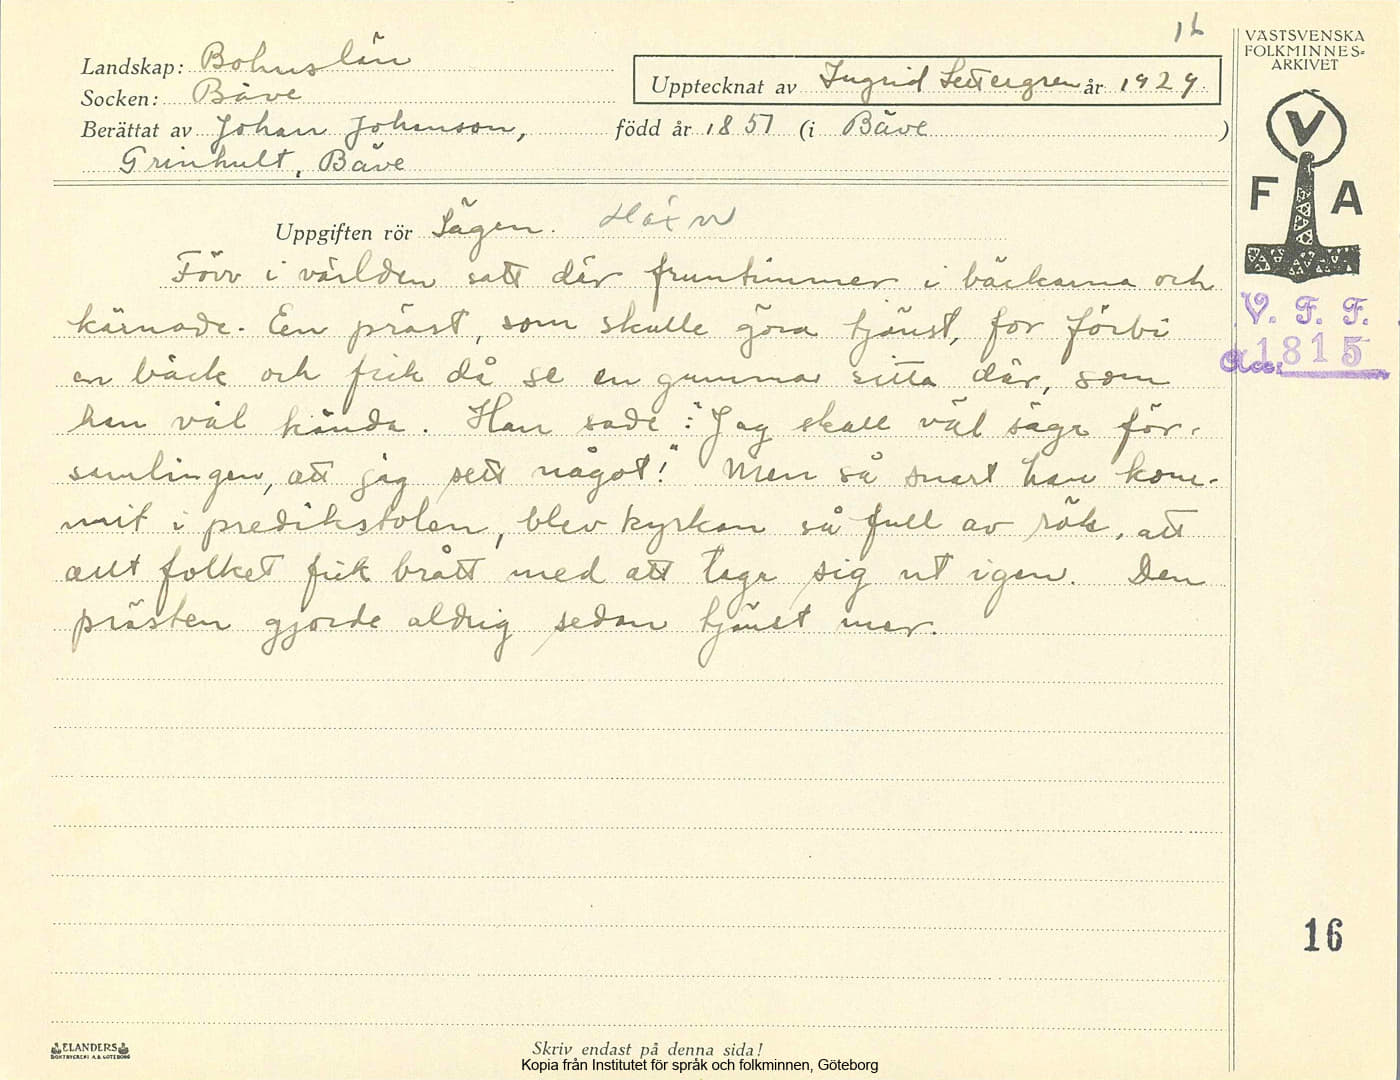 16
Landskap: Bohuslän
Socken: Bäve
Upptecknat av Ingrid Settergren år 1929.
Berättat av Johan Johanson, född år 1851 (i Bäve )
Grinhult, Bäve
VÄSTSVENSKA
FOLKMINNES-
ARKIVET
V
F A
V. F. F.
Acc. 1815
Uppgiften rör Sägen. Häxor
Förr i världen satt där fruntimmer i bäckarna och
kärnade. En präst, som skulle göra tjänst, for förbi
en bäck och fick då se en gumma sitta där, som
han väl kände. Han sade: "Jag skall väl säga för-
samlingen, att jag sett något!" Men så snart han kom-
mit i predikstolen, blev kyrkan så full av rök, att
allt folket fick brått med att taga sig ut igen. Den
prästen gjorde aldrig sedan tjänst mer.
16
ELANDERS
BOKTRYCKERI A.B. GÖTEBORG
Skriv endast på denna sida!
Kopia från Institutet för språk och folkminnen, Göteborg